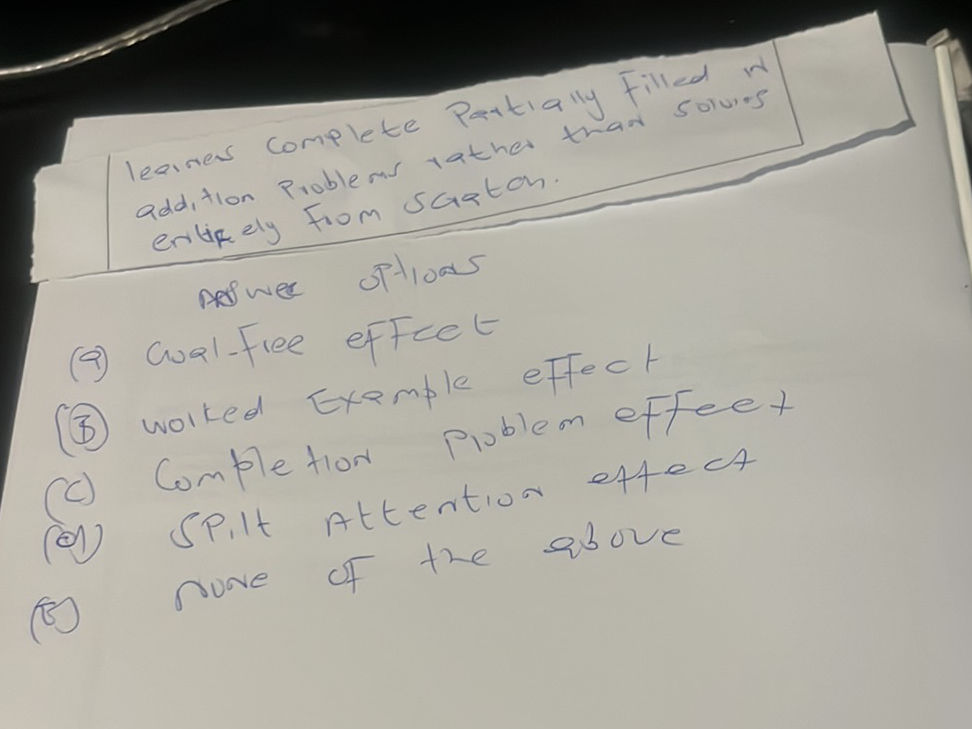 learners Complete Partially filled in
addition Problems rather than solving
entirely from scratch.
Answer options
(a) Goal-free effect
(B) worked Example effect
(C) Completion Problem effect
(d) Spilt Attention effect
(E) none of the above